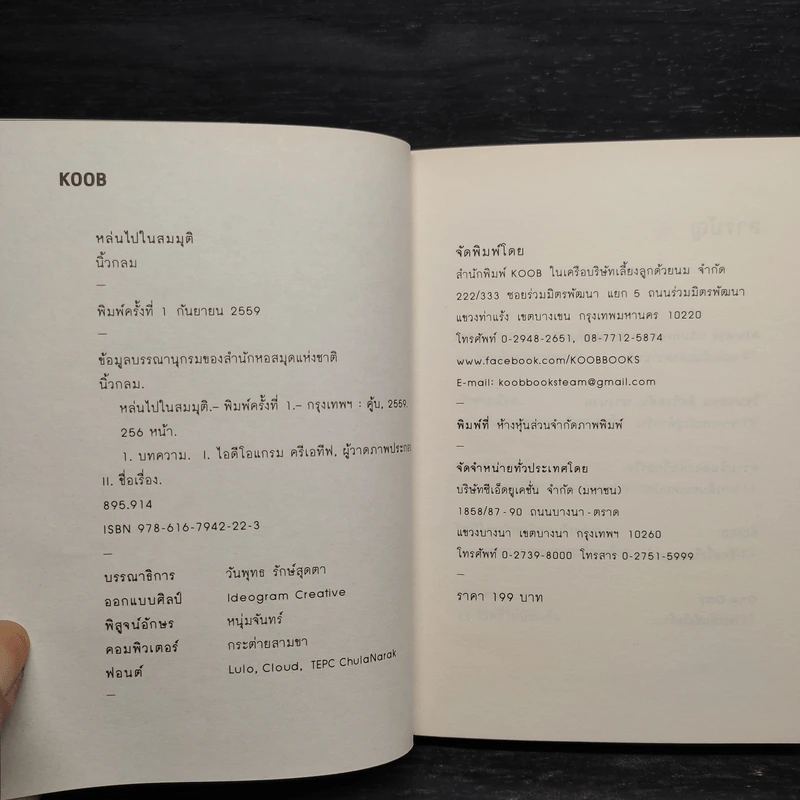 KOOB
หล่นไปในสมมุติ
นิ้วกลม
—
พิมพ์ครั้งที่ 1 กันยายน 2559
—
ข้อมูลบรรณานุกรมของสำนักหอสมุดแห่งชาติ
นิ้วกลม.
หล่นไปในสมมุติ.– พิมพ์ครั้งที่ 1.– กรุงเทพฯ : คู้บ, 2559.
256 หน้า.
1. บทความ. I. ไอดีโอแกรม ครีเอทีฟ, ผู้วาดภาพประกอบ
II. ชื่อเรื่อง.
895.914
ISBN 978-616-7942-22-3
—
บรรณาธิการ วันพุทธ รักษ์สุดตา
ออกแบบศิลป์ Ideogram Creative
พิสูจน์อักษร หนุ่มจันทร์
คอมพิวเตอร์ กระต่ายสามขา
ฟอนต์ Lulo, Cloud, TEPC ChulaNarak
—
จัดพิมพ์โดย
สำนักพิมพ์ KOOB ในเครือบริษัทเลี้ยงลูกด้วยนม จำกัด
222/333 ซอยร่วมมิตรพัฒนา แยก 5 ถนนร่วมมิตรพัฒนา
แขวงท่าแร้ง เขตบางเขน กรุงเทพมหานคร 10220
โทรศัพท์ 0-2948-2651, 08-7712-5874
www.facebook.com/KOOBBOOKS
E-mail: koobbooksteam@gmail.com
—
พิมพ์ที่ ห้างหุ้นส่วนจำกัดภาพพิมพ์
—
จัดจำหน่ายทั่วประเทศโดย
บริษัทซีเอ็ดยูเคชั่น จำกัด (มหาชน)
1858/87-90 ถนนบางนา-ตราด
แขวงบางนา เขตบางนา กรุงเทพฯ 10260
โทรศัพท์ 0-2739-8000 โทรสาร 0-2751-5999
—
ราคา 199 บาท